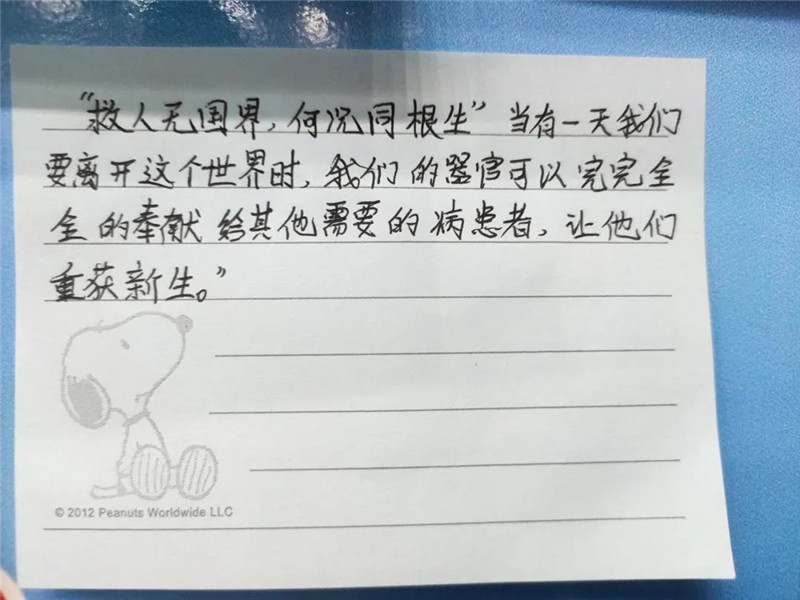 “救人无国界，何况同根生”当有一天我们
要离开这个世界时，我们的器官可以完完全
全的奉献给其他需要的病患者，让他们
重获新生。”
© 2012 Peanuts Worldwide LLC